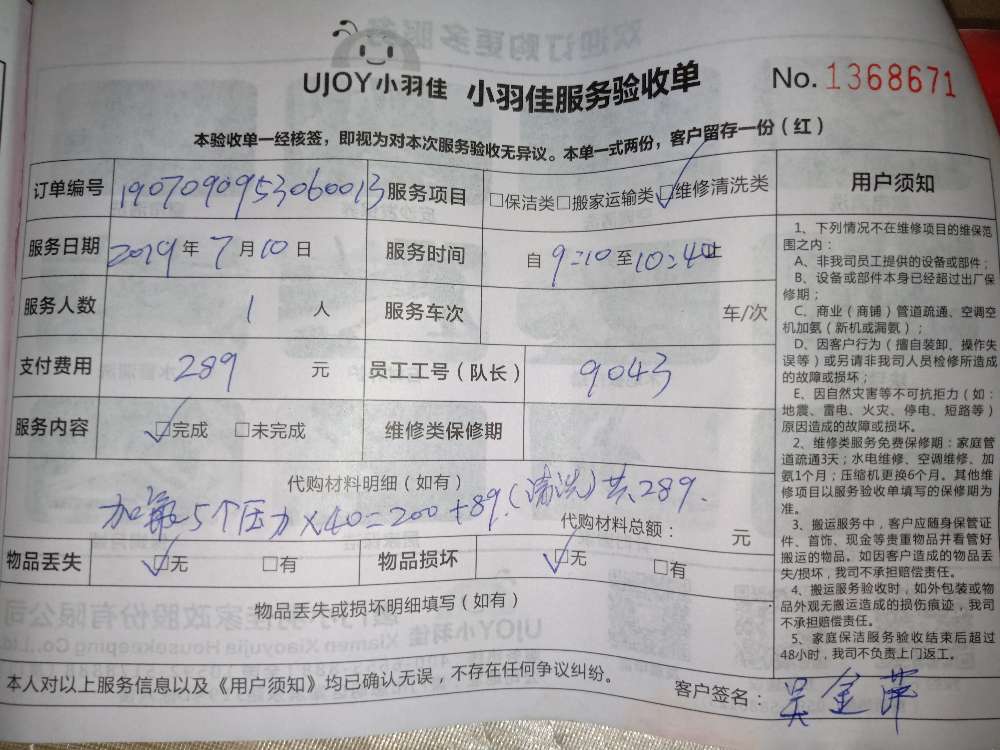 UJOY小羽佳 小羽佳服务验收单 No.1368671
本验收单一经核签，即视为对本次服务验收无异议。本单一式两份，客户留存一份（红）
订单编号 1907090953060013 服务项目 □保洁类□搬家运输类☑维修清洗类
服务日期 2019年7月10日 服务时间 自9:10至10:40止
服务人数 1 人 服务车次 车/次
支付费用 289 元 员工工号（队长） 9043
服务内容 ☑完成 □未完成 维修类保修期
代购材料明细（如有）
加氟5个压力×40=200+89.(清洗)共289.
代购材料总额： 元
物品丢失 ☑无 □有 物品损坏 ☑无 □有
物品丢失或损坏明细填写（如有）
本人对以上服务信息以及《用户须知》均已确认无误，不存在任何争议纠纷。
客户签名：吴金萍
用户须知
1、下列情况不在维修项目的维保范
围之内：
A、非我司员工提供的设备或部件；
B、设备或部件本身已经超过出厂保
修期；
C、商业（商铺）管道疏通、空调空
机加氨（新机或漏氨）；
D、因客户行为（擅自装卸、操作失
误等）或另请非我司人员检修所造成
的故障或损坏；
E、因自然灾害等不可抗拒力（如：
地震、雷电、火灾、停电、短路等）
原因造成的故障或损坏。
2、维修类服务免费保修期：家庭管
道疏通3天；水电维修、空调维修、加
氨1个月；压缩机更换6个月。其他维
修项目以服务验收单填写的保修期为
准。
3、搬运服务中，客户应随身保管证
件、首饰、现金等贵重物品并看管好
搬运的物品。如因客户造成的物品丢
失/损坏，我司不承担赔偿责任。
4、搬运服务验收时，如外包装或物
品外观无搬运造成的损伤痕迹，我司
不承担赔偿责任。
5、家庭保洁服务验收结束后超过
48小时，我司不负责上门返工。